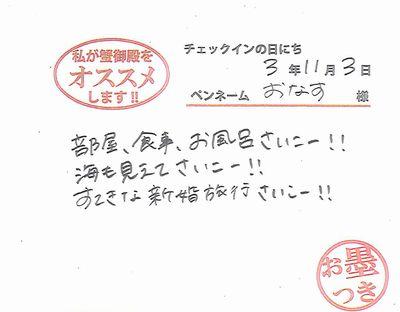 私が蟹御殿を
オススメ
します!!
チェックインの日にち
3年11月3日
ペンネーム おなす 様
部屋、食事、お風呂さいこー!!
海も見えてさいこー!!
すてきな新婚旅行さいこー!!
お墨
つき